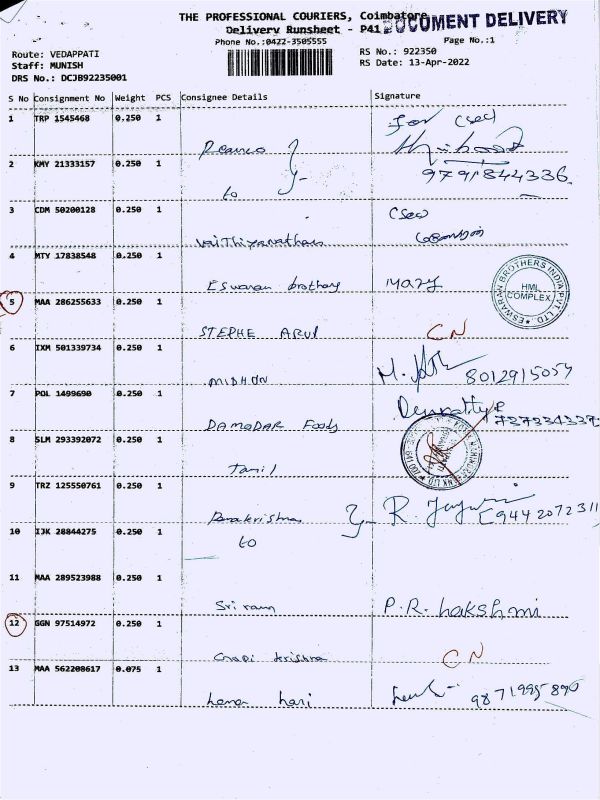 THE PROFESSIONAL COURIERS, Coimbatore
DOCUMENT DELIVERY
Delivery Runsheet - P41
Phone No.:0422-3505555
Page No.:1
Route: VEDAPPATI
RS No.: 922350
Staff: MUNISH
RS Date: 13-Apr-2022
DRS No.: DCJB92235001
S No Consignment No Weight PCS Consignee Details Signature
1 TRP 1545468 0.250 1 for
2 KMY 21333157 0.250 1 to 9791844336
3 CDM 50200128 0.250 1 Vaithiyanathan
4 MTY 17838548 0.250 1 Eswaran brothers Mary
ESWARAN BROTHERS INDIA PVT. LTD.
HML
COMPLEX
5 MAA 286255633 0.250 1 STEPHE ARUL CN
6 IXM 501339734 0.250 1 MIDHUN 8012915059
7 POL 1499690 0.250 1 DAMODAR Foods
8 SLM 293392072 0.250 1 Tamil
9 TRZ 125550761 0.250 1 R. 9442072311
10 IJK 28844275 0.250 1 to
11 MAA 289523988 0.250 1 Sri ram P.R. Lakshmi
12 GGN 97514972 0.250 1 Gopi krishna CN
13 MAA 562208617 0.075 1 hari 9871995890